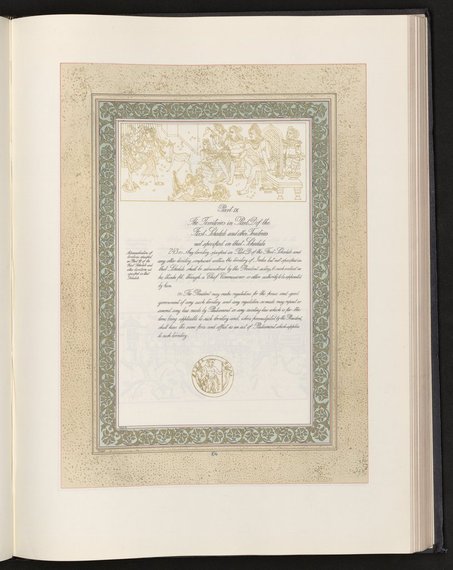 Part IX
The Territories in Part D of the
First Schedule and other Territories
not specified in that Schedule
Administration of
territories specified
in Part D of the
First Schedule and
other territories not
specified in that
Schedule.
243. (1) Any territory specified in Part D of the First Schedule and
any other territory comprised within the territory of India but not specified in
that Schedule shall be administered by the President acting, to such extent as
he thinks fit, through a Chief Commissioner or other authority to be appointed
by him.
(2) The President may make regulations for the peace and good
government of any such territory and any regulation so made may repeal or
amend any law made by Parliament or any existing law which is for the
time being applicable to such territory and, when promulgated by the President,
shall have the same force and effect as an Act of Parliament which applies
to such territory.